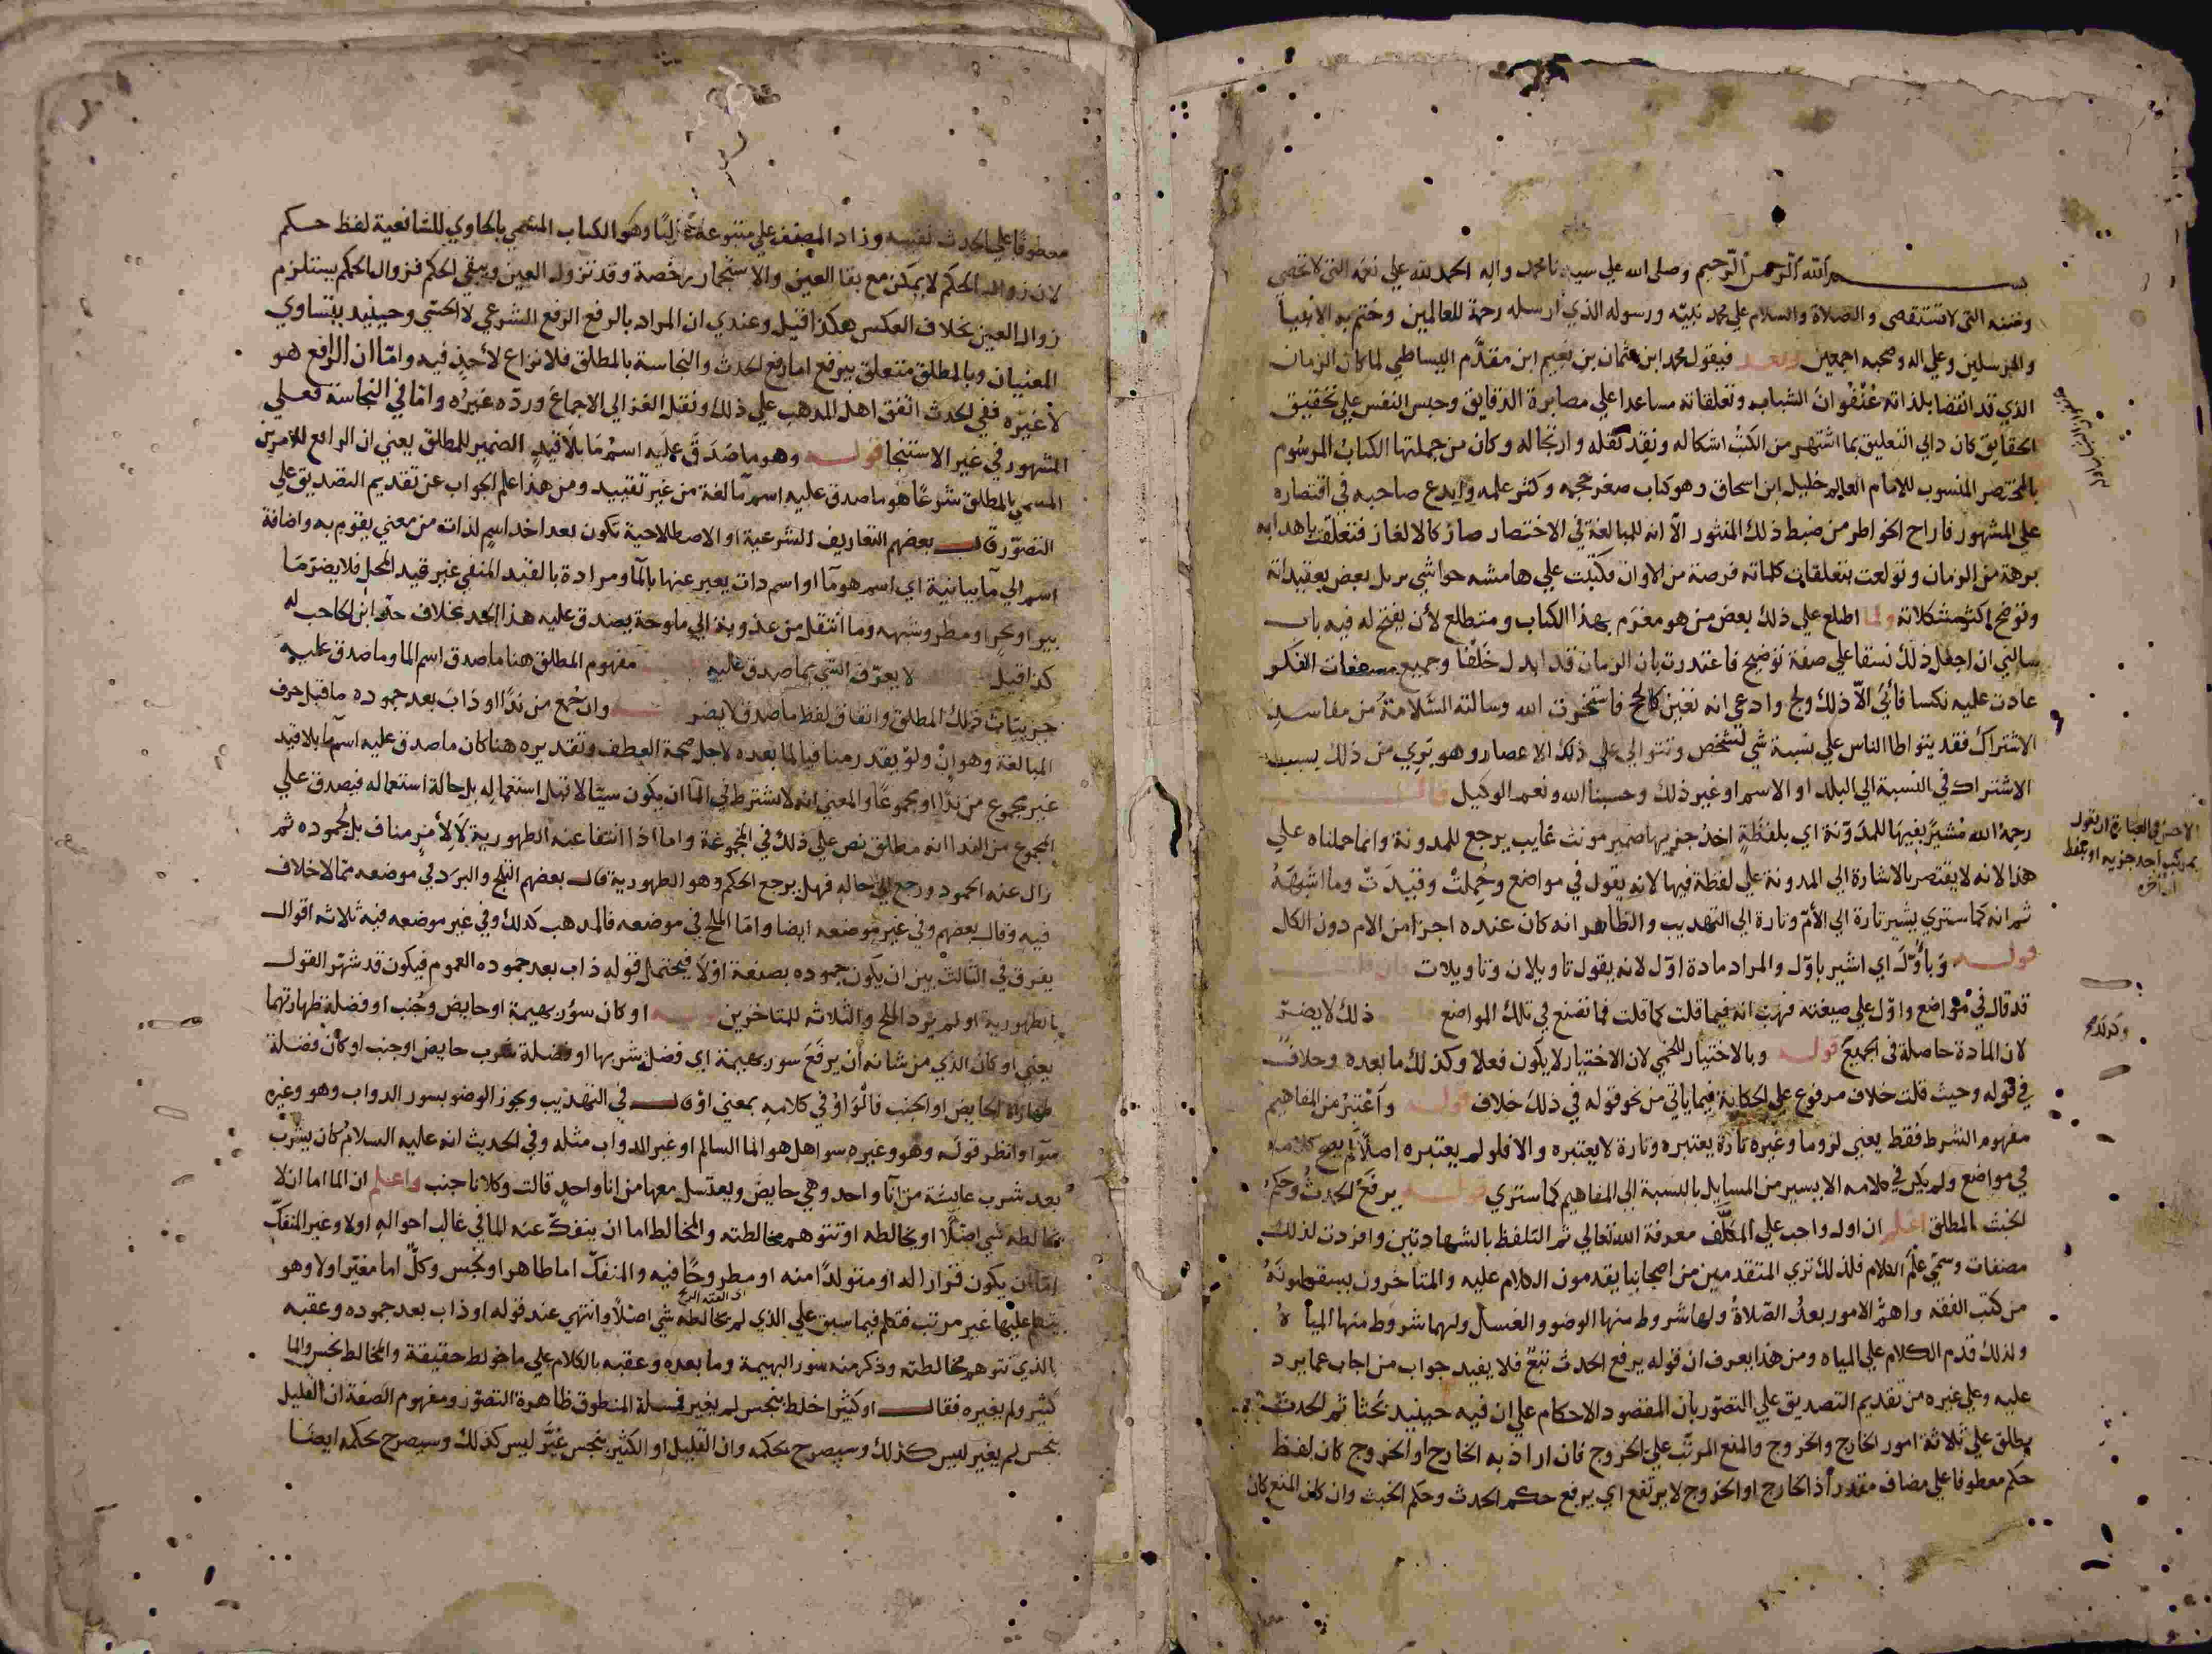 بســـم الله الرحمن الرحيم وصلى الله على سيدنا محمد واله الحمد لله علي نعمه التي لا تحصى
ومننه التي لا تستقصى والصلاة والسلام علي محمد نبيّه ورسوله الذي ارسله رحمة للعالمين وختم به الانبيآ
والمرسلين وعلي اله وصحبه اجمعين وبعد فيقول محمد ابن عثمان بن نعيم ابن مقدّم البساطي لما كان الزمان
الذي قد انقضا بلذاته عُنْفُوانُ الشباب وتعلقاته مساعدا علي مصابرة الدقايق وحبس النفس علي تحقيق
الحقايق كان دابي التعليق بما اشتهر من الكتب اشكاله ونقد نقله وارتجاله وكان من جملتها الكتابُ الموسُوم
بالمختصر المنسوب للامام العالِم خليل ابن اسحاق وهو كتاب صغر حجمه وكثر علمه وابدع صاحبه في اقتصاره
علي المشهور فاراح الخواطر من ضبط ذلك المنثور الّا انه للمبالغة في الاختصار صار كالالغاز فتعلقت باهدابه
برهة من الزمان وتولعت بتعلقات كلماته فرصة من الاوان وكتبت علي هامشه حواشي تزيل بعض تعقيداته
وتوضح اكثر مشكلاته ولما اطلع علي ذلك بعض من هو مغرم بهذا الكتاب ومتطلع لأن يفتح له فيه باب
سالني ان اجعل ذلك نسقا علي صفة توضيح فاعتذرت بان الزمان قد ابدل خلْفًا وجميع صفقات الفكر
عادت عليه نكسا فأبَي الاّ ذلك ولج وادعي انه تعين كالحج فاستخرت الله وسالته السّلامة من مفاسد
الاشتراك فقد يتواطا الناس علي نسبة شي لشخص وتتوالي علي ذلك الاعصار وهو بَرِي من ذلك بسبب
الاشتراك في النسبة الي البلد او الاسم او غير ذلك وحسبنا الله ونعم الوكيل قال
رحمه الله مُشيرًا بفيهَا للمدَوّنة اي بلفظةٍ احدُ جزيها ضمير مونث غايب يرجع للمدونة وانما حملناه علي
هذا لانه لا يقتصر بالاشارة الي المدونة علي لفظة فيها لانه يقول في مواضع وحُمِلتْ وقيدَتْ وما اشبهَهُ
ثم انه كما ستري يشير تارة الي الأمّ وتارة الي التهديب والظاهر انه كان عنده اجزا من الام دون الكل
قولـــه وَبأُوِّلَ اي اشير باوّل والمراد مادة اوّل لانه يقول تاويلان وتاويلات فان قلت
قد قال في مواضع واوّل علي صيغته فهَبْ انه فيما قلت كما قلت فما تصنع في تلك المواضع ذلك لا يضرّ
لان المادة حاصلة في الجميع قولـــه وبالاختيار للخمي لان الاختيار لا يكون فعلا وكذلك ما بعده وخلافٌ
في قوله وحيث قلت خلاف مرفوع علي الحكاية فيما ياتي من نحو قوله في ذلك خلاف قولـــه وأعْتَبِرُ من المفاهيم
مفهوم الشرط فقط يعني لزوما وغيره تارة يعتبره وتارة لا يعتبره والا فلو لم يعتبره اصلًا لم يصح كلامه
في مواضع ولم يكن في كلامه الا يسير من المسايل بالنسبة الي المفاهيم كما ستري قولـــه يرفَعُ الحدثُ وحكمُ
الخبث بالمطلق اعلم ان اول واجب علي المكلّف معرفة الله تعالي ثم التلفظ بالشهادتين وافردت لذلك
مصنفات وسُمّيَ عِلْمَ الكلام فلذلك تري المتقدمين من اصحابنا يقدمون الكلام عليه والمتاخرون يسقطونَهُ
من كتب الفقه واهمُّ الامور بعدُ الصّلاةُ ولها شروط منها الوضو والغسل ولهما شروط منها المياهُ
ولذلك قدّم الكلام علي المياه ومن هذا يعرف ان قوله يرفع الحدث تبَعٌ فلا يفيد جواب من اجاب عما يرد
عليه وعلي غيره من تقديم التصديق علي التصوّر بان المقصود الاحكام علي ان فيه حينيد بحثا ثم الحدث
يطلق علي ثلاثة امور الخارج والخروج والمنع المرتّب علي الخروج فان اراد به الخارج او الخروج كان لفظ
حكم معطوفا علي مضاف مقدر اذ الخارج او الخروج لا يرتفع اي يرفع حكم الحدث وحكم الخبث وان كان المنع كان
الاحسن في العبارة ان تقول
بمركب احد جزيه او بلفظ
معطوفا علي الحدث نفسه وزاد المصنف علي متبوعه غالبًا وهو الكتاب المسّمي بالحاوي للشافعية لفظ حكم
لان زوال الحكم لا يمكن مع بقا العين والاستجمار رخصة وقد تزول العين ويبقي الحكم فزوال الحكم يستلزم
زوال العين بخلاف العكس هكذا قيل وعندي ان المراد بالرفع الرفع الشرعي لا الحسّي وحينيد يتساوي
المعنيان وبالمطلق متعلق بيرفع اما رفع الحدث والنجاسة بالمطلق فلا نزاع لأحدٍ فيه وامّا ان الرافع هو
لا غيره ففي الحدث اتفق اهل المذهب علي ذلك ونقل الغزالي الاجماعَ وردّه غيرُه وامّا في النجاسة فعلي
المشهور في غير الاستنجا قولـــه وهو ما صَدَقَ عليه اسمُ مَا بلا قيدٍ الضمير للمطلق يعني ان الرافع للامرين
المسمي بالمطلق شرعًا هو ما صدق عليه اسم مآ لغة من غير تقييد ومن هذا علم الجواب عن تقديم التصديق علي
التصوّر قال بعضهم التعاريف الشرعية او الاصطلاحية تكون بعد اخد اسمٍ لذات من معني يقوم به واضافة
اسم الي مآ بيانية اي اسم هو مآ او اسم ذات يعبر عنها بالمآ ومراده بالقيد المنفي غير قيد المحل فلا يضرّ مَا
بير او بحرٍ او مطر وشبهه وما انتقل من عذوبة الي ملوحة يصدق عليه هذا الحد بخلاف حدّ ابن الحاجب له
كذا قيل لا يعرّف الشي بما صدق عليه مفهوم المطلق هنا ما صدق اسم الما وما صدق عليه
جزييّات ذلك المطلق واتفاق لفظ ما صدق لا يضر وان جُمع من ندًا او ذابَ بعد جموده ما قبل حرف
المبالغة وهو انْ ولوْ يقدر مناسبا لما بعده لاجل صحة العطف وتقديره هنا كان ما صدق عليه اسم مآ بلا قيد
غير مجموع من ندًا او مجموعًا والمعني انه لا يشترط في المآ ان يكون سيّالا قبل استعماله بل حالة استعماله فيصدق علي
المجموع من الندا انه مطلق نص علي ذلك في المجموعة واما اذا انتفا عنه الطهورية لا لأمرٍ مناف بل لجموده ثم
زال عنه الجمود ورجع الي حاله فهل يرجع الحكم وهو الطهورية قال بعضهم الثلج والبرَد في موضعه ممّا لا خلاف
فيه وقال بعضهم وفي غير موضعه ايضا وامّا الملح في موضعه فالمذهب كدلك وفي غير موضعه فيه ثلاثه اقوال
يفرق في الثالث بين ان يكون جموده بصنعة اوْلا فيحتمل قوله ذاب بعد جموده العموم فيكون قد شهّر القول
بالطهورية او لم يرد الملح والثلاثه للمتاخرين قولـــه او كان سؤر بهيمة او حايض وجُنب او فضلة طهارتهما
يعني او كان الذي من شانه أن يرفَعَ سور بهيمة اي فضلَ شربها او فضلة شرب حايض او جنب او كان فضلة
طهارة الحايض او الجنب فالْوَاوُ في كلامه بمعني اوْ قال في التهذيب ويجوز الوضو بسور الدواب وهو وغيره
سَوآ وانظر قولَه وهو وغيره سوا هل هو الما السالم او غير الدواب مثله وفي الحديث انه عليه السلامُ كان يشرب
بعد شرب عايشة من إنآ واحد وهي حايض ويغتسل معها من انا واحدٍ قالت وكلانا جنب واعلم ان الما اما ان لا
يخالطه شي اصْلًا او يخالطه او تتوهم مخالطته والمخالط اما ان ينفكّ عنه الما في غالب احواله اولا وغير المنفكّ
امّا ان يكون قرارا له او متولدًا منه او مطروحًا فيه والمنفكّ اما طاهر او نجس وكلّ اما مغيّر اولا وهو
يتكلم عليها غير مرتب فتكلم فيما سبق علي الذي لم يخالطه شي اصْلًا وانتهي عند قوله او ذاب بعد جموده وعقبه
بالذي تتوهم مخالطته وذكر منه سُور البهيمة وما بعده وعقبه بالكلام علي ما خولط حقيقة والمخالط نجس والما
كثير ولم يغيره فقال او كثيرًا خلط بنجس لم يغير فمسلة المنطوق ظاهرة التصوّر ومفهوم الصّفة ان القليل
بنجس لم يغير ليس كذلك وسيصرح بحكمه وان القليل او الكثير بنجس غيّرَ ليس كذلك وسيصرح بحكمه ايضا